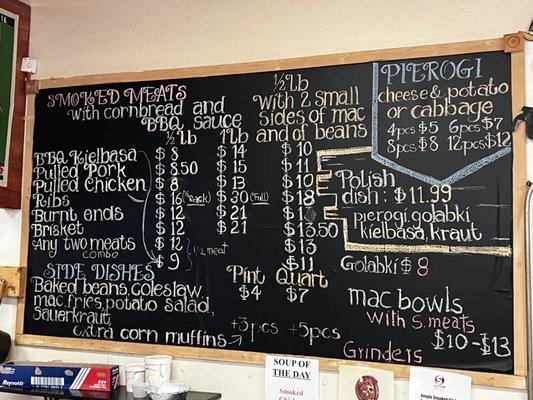 SMOKED MEATS
with cornbread and
BBQ SAUCE
½ Lb 1 Lb
½ Lb
With 2 small
sides of mac
and of beans
BBQ Kielbasa $8 $14 $10
Pulled Pork $8.50 $15 $11
Pulled chicken $8 $13 $10
Ribs $16 (½ rack) $30 (Full) $18
Burnt ends $12 $21
Brisket $12 $21 $13.50
Any two meats $12 $13
combo $9 ½ meat $11
SIDE DISHES
Pint Quart
$4 $7
Baked beans, coleslaw,
mac, fries, potato salad,
Sauerkraut
extra corn muffins +3pcs +5pcs
PIEROGI
cheese & potato
or cabbage
4pcs $5 6pcs $7
8pcs $8 12pcs $12
Polish
dish: $11.99
pierogi, golabki
kielbasa, kraut
Golabki $8
mac bowls
with S. meats
$10-$13
Grinders
Reynolds
SOUP OF
THE DAY
Smoked